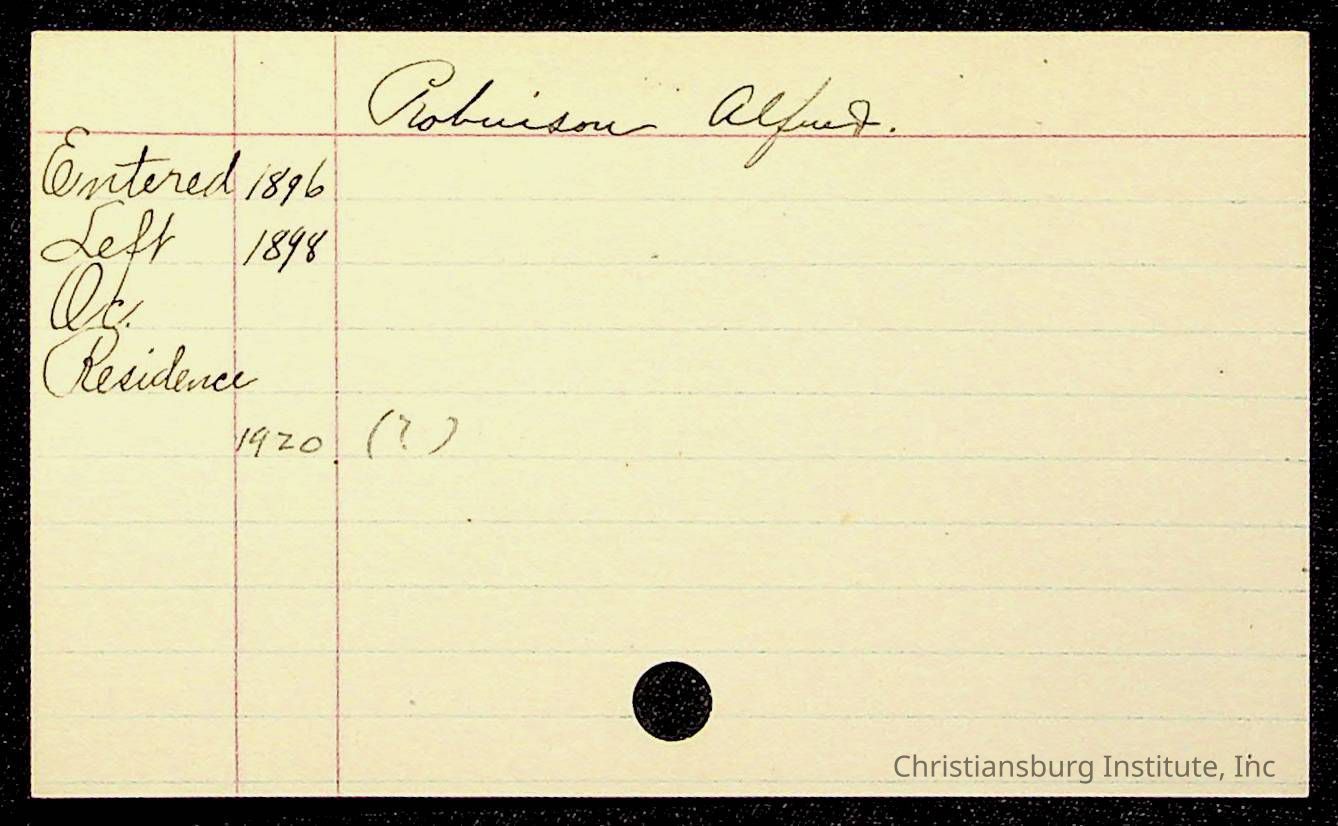 Robinson Alfred.
Entered 1896
Left 1898
Oc.
Residence
1920 (?)
Christiansburg Institute, Inc